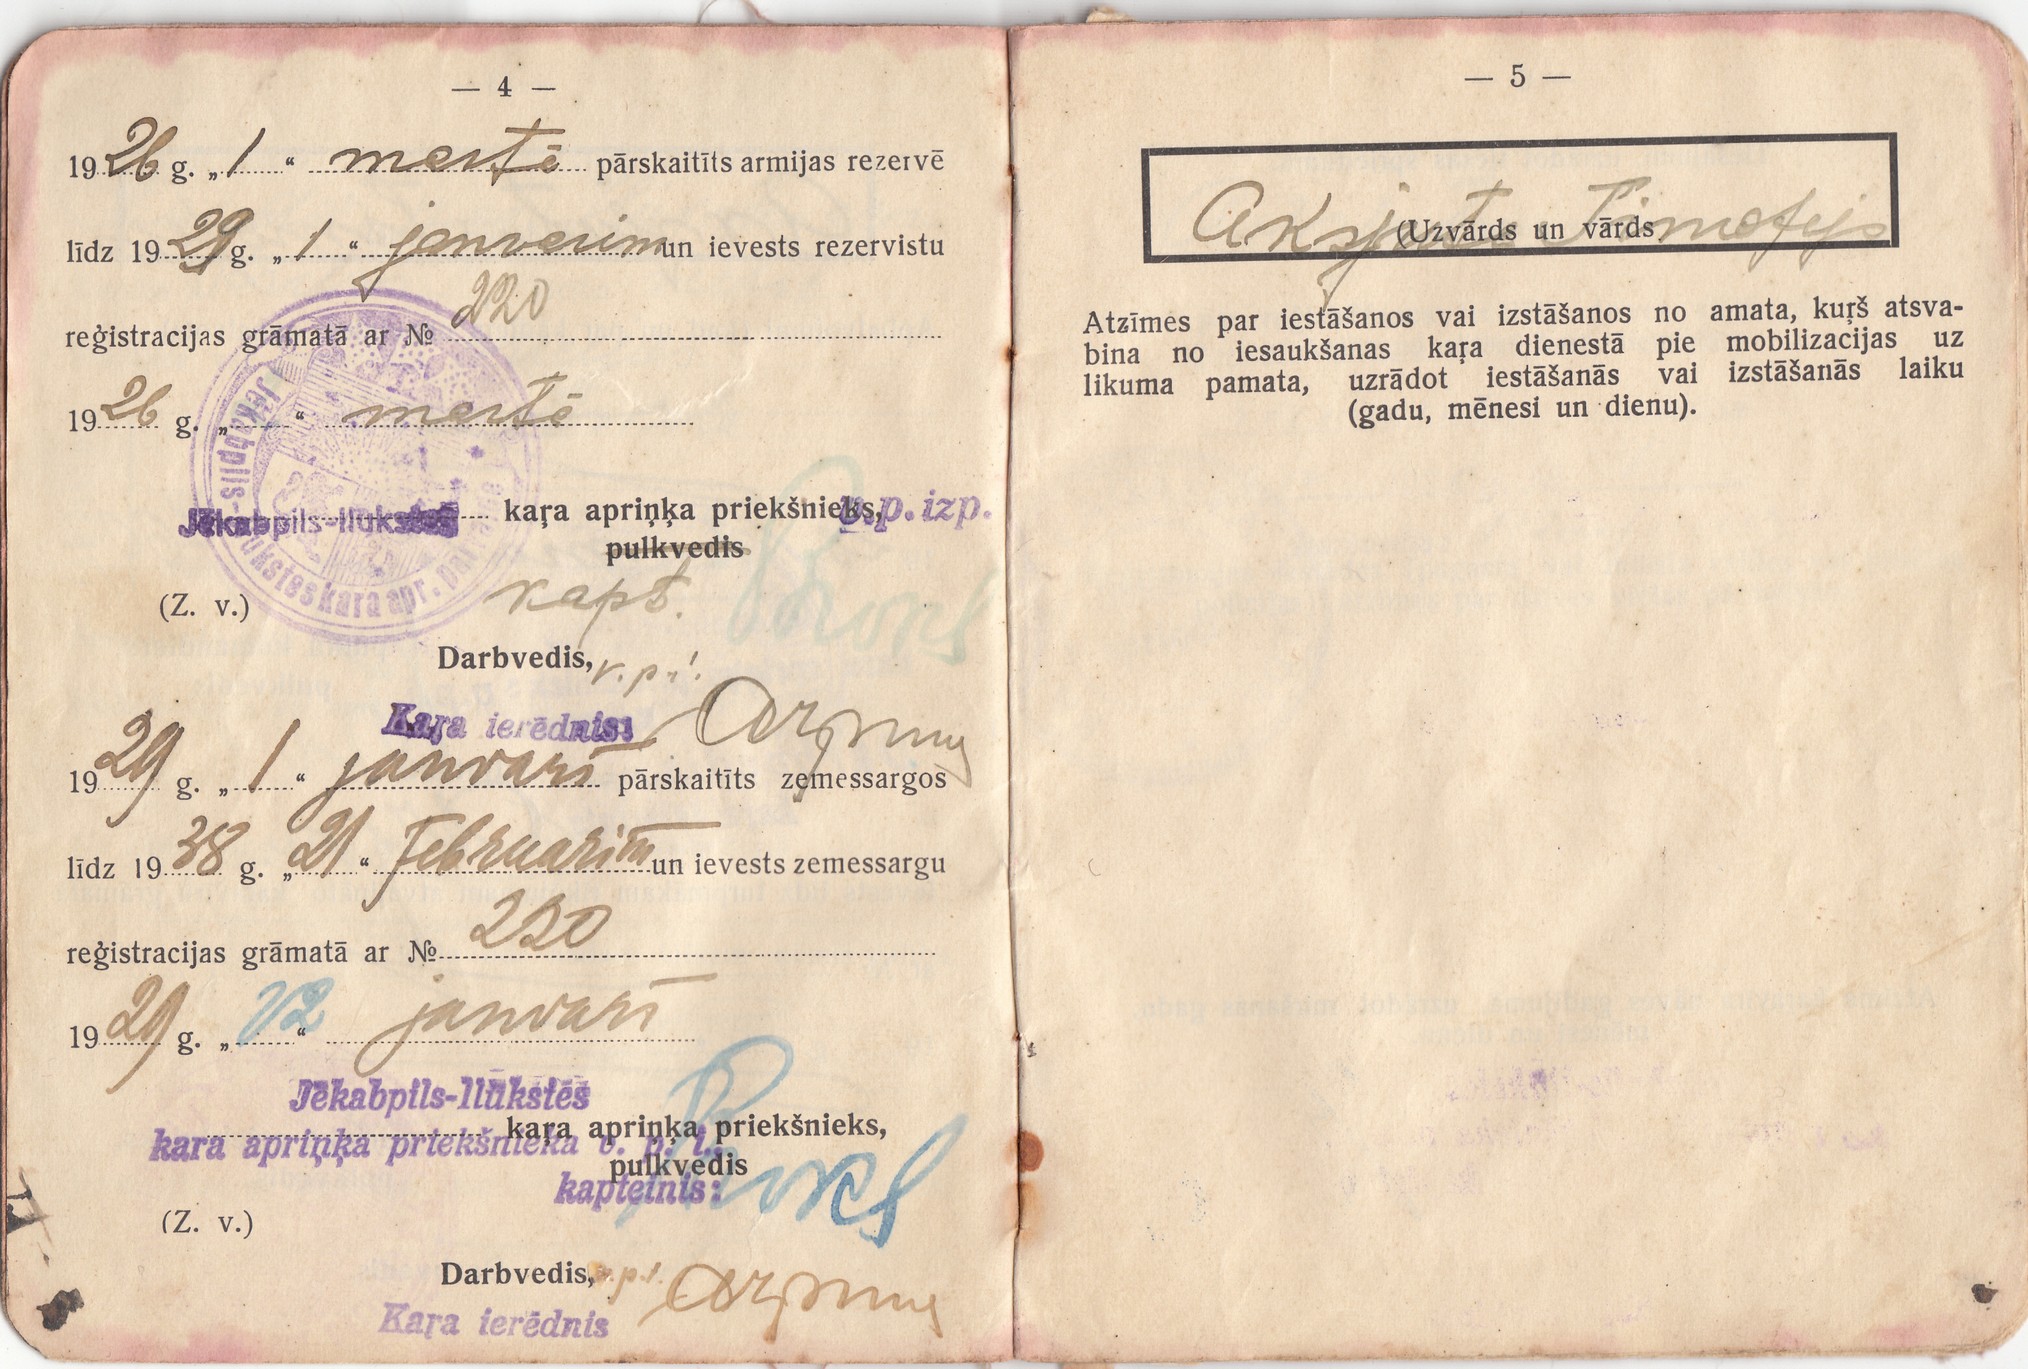 — 4 —
1926 g. „1“ martā pārskaitīts armijas rezervē
līdz 1929 g. „1“ janvarim un ievests rezervistu
reģistracijas grāmatā ar № 220
1926 g. „ “ martā
Jēkabpils-Ilūkstes kaŗa apriņķa priekšnieks, v.p.izp.
pulkvedis
(Z. v.) kapt.
Darbvedis, v.p.i.
Kaŗa ierēdnis:
1929 g. „1“ janvarī pārskaitīts zemessargos
līdz 1938 g. „21“ februarim un ievests zemessargu
reģistracijas grāmatā ar № 220
1929 g. „ “ janvarī
Jēkabpils-Ilūkstes
kaŗa apriņķa priekšnieks,
kara apriņķa priekšnieka v. p. i.,
pulkvedis
kapteinis:
(Z. v.)
Darbvedis, v.p.i.
Kaŗa ierēdnis
— 5 —
Timofejs
(Uzvārds un vārds
Atzīmes par iestāšanos vai izstāšanos no amata, kuŗš atsva-
bina no iesaukšanas kaŗa dienestā pie mobilizacijas uz
likuma pamata, uzrādot iestāšanās vai izstāšanās laiku
(gadu, mēnesi un dienu).